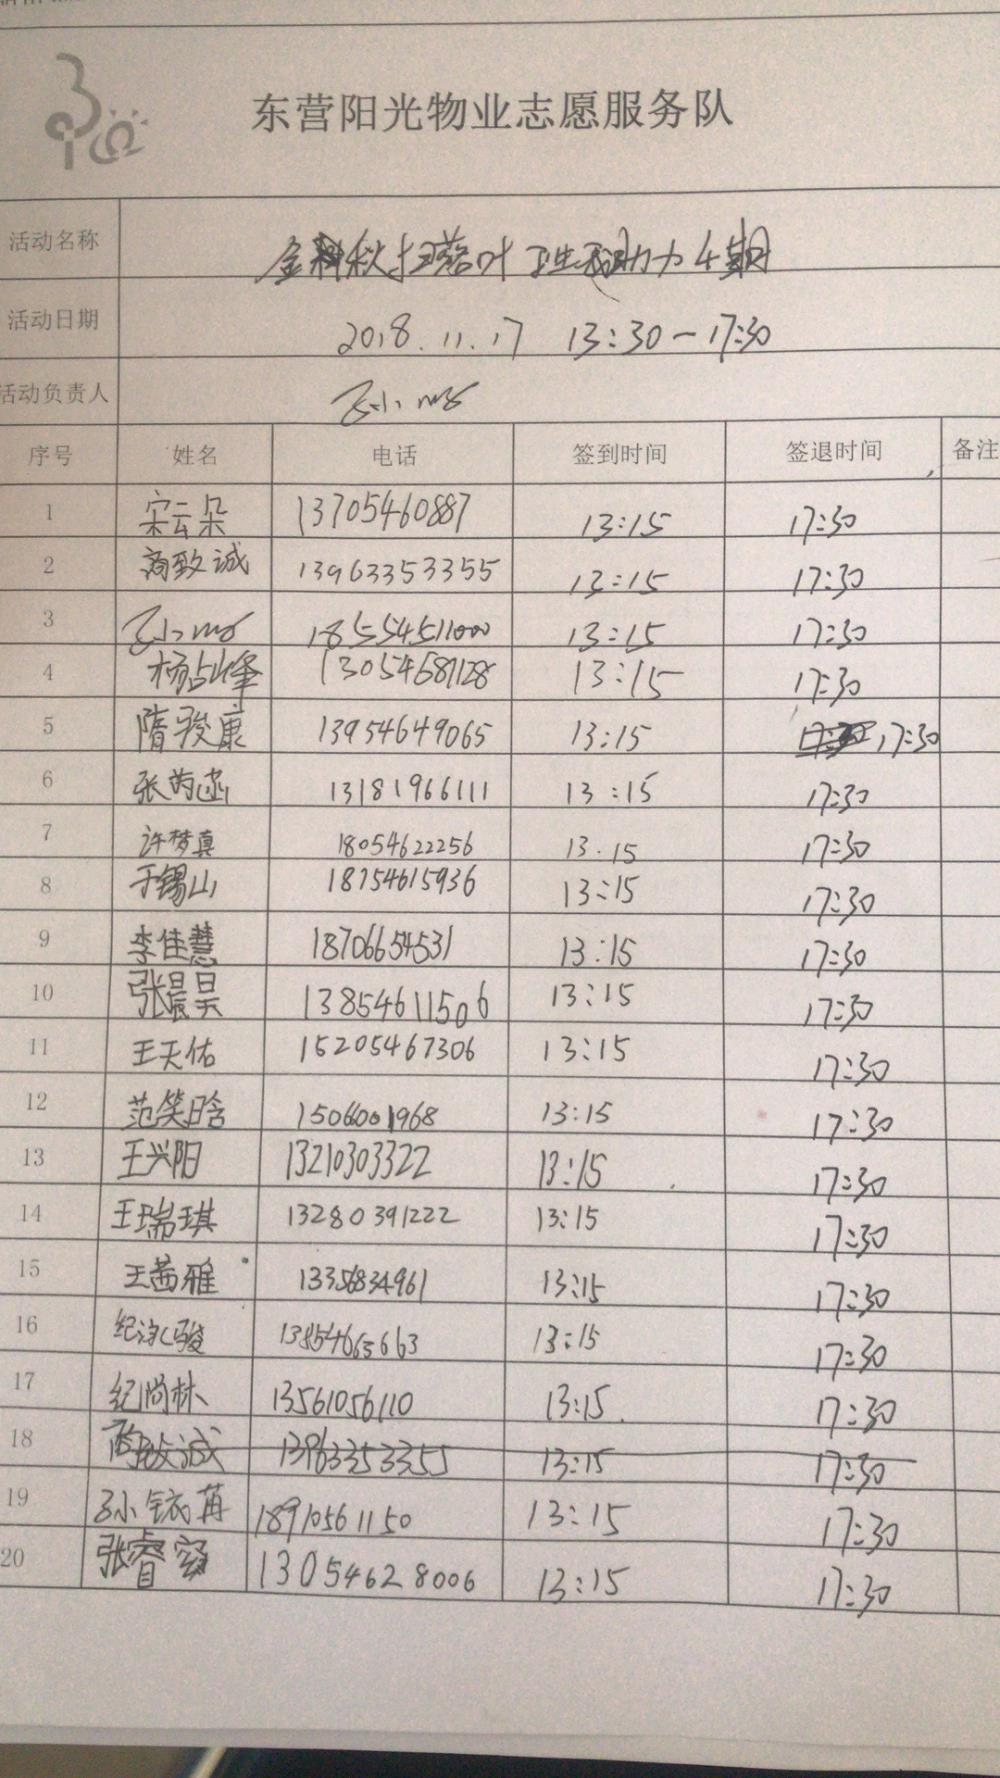 东营阳光物业志愿服务队
活动名称 金秋扫落叶 卫生我助力 4期
活动日期 2018.11.17 13:30-17:30
活动负责人
序号 姓名 电话 签到时间 签退时间 备注
1 宋云朵 13705460887 13:15 17:30
2 商致诚 13963353355 13:15 17:30
3 18554511000 13:15 17:30
4 杨占峰 13054687128 13:15 17:30
5 隋骏康 13954649065 13:15 17:30 17:30
6 张芮涵 13181966111 13:15 17:30
7 许梦真 18054622256 13.15 17:30
8 于锡山 18754615936 13:15 17:30
9 李佳慧 18706654531 13:15 17:30
10 张晨昊 13854611506 13:15 17:30
11 王天佑 15205467306 13:15 17:30
12 范笑晗 13:15 17:30
13 王兴阳 13210303322 13:15 17:30
14 王瑞琪 13280391222 13:15 17:30
15 王茜雅 13356834961 13:15 17:30
16 13854665663 13:15 17:30
17 纪尚林 13561056110 13:15 17:30
18 商致诚 13963353355 13:15 17:30
19 18910561150 13:15 17:30
20 张睿 13054628006 13:15 17:30